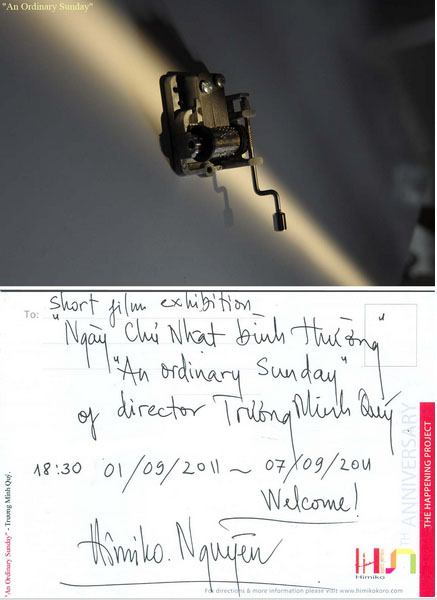 "An Ordinary Sunday"
short film exhibition
To:
"Ngày Chủ Nhật Bình Thường"
"An ordinary Sunday"
of director Trương Minh Quý
18:30 01/09/2011 ~ 07/09/2011
Welcome!
Himiko. Nguyễn
Himiko
For directions & more information please visit www.himikokoro.com
"An Ordinary Sunday" - Trương Minh Quý.
TH ANNIVERSARY
THE HAPPENING PROJECT